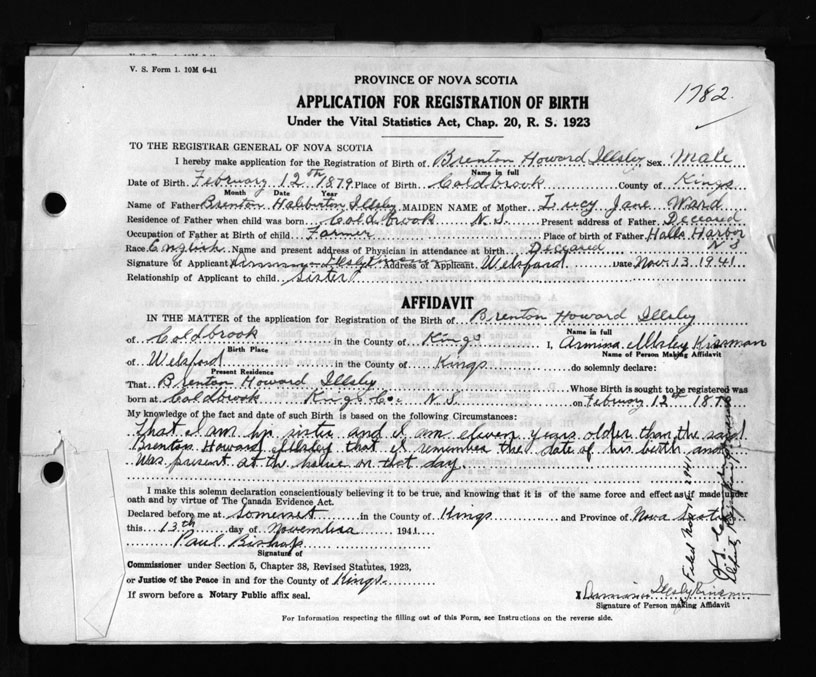 V. S. Form 1. 10M 6-41
PROVINCE OF NOVA SCOTIA
1782.
APPLICATION FOR REGISTRATION OF BIRTH
Under the Vital Statistics Act, Chap. 20, R. S. 1923
TO THE REGISTRAR GENERAL OF NOVA SCOTIA
I hereby make application for the Registration of Birth of Brenton Howard Illsley Sex Male
Name in full
Date of Birth February 12th 1879 Place of Birth Coldbrook County of Kings
Month Date Year
Name of Father Brenton Haliburton Illsley MAIDEN NAME of Mother Lucy Jane Ward
Residence of Father when child was born Coldbrook N.S. Present address of Father Deceased
Occupation of Father at Birth of child Farmer Place of birth of Father Halls Harbor
Race English Name and present address of Physician in attendance at birth Deceased N S
Signature of Applicant Illsley Address of Applicant Welsford Date Nov. 13 1941
Relationship of Applicant to child Sister
AFFIDAVIT
IN THE MATTER of the application for Registration of the Birth of Brenton Howard Illsley
Name in full
of Coldbrook in the County of Kings I, Armina Illsley Kinsman
Birth Place Name of Person Making Affidavit
of Welsford in the County of Kings do solemnly declare:
Present Residence
That Brenton Howard Illsley Whose Birth is sought to be registered was
born at Coldbrook Kings Co. N S on February 12th 1879
My knowledge of the fact and date of such Birth is based on the following Circumstances:
That I am his sister and I am eleven years older than the said
Brenton Howard Illsley that I remember the date of his birth and
was present at the house on that day.
I make this solemn declaration conscientiously believing it to be true, and knowing that it is of the same force and effect as if made under
oath and by virtue of The Canada Evidence Act.
Declared before me at Somerset in the County of Kings and Province of Nova Scotia
this 13th day of November 1941
Paul Bishop
Signature of
Commissioner under Section 5, Chapter 38, Revised Statutes, 1923,
or Justice of the Peace in and for the County of Kings
If sworn before a Notary Public affix seal.
X Armina Illsley Kinsman
Signature of Person making Affidavit
For Information respecting the filling out of this Form, see Instructions on the reverse side.